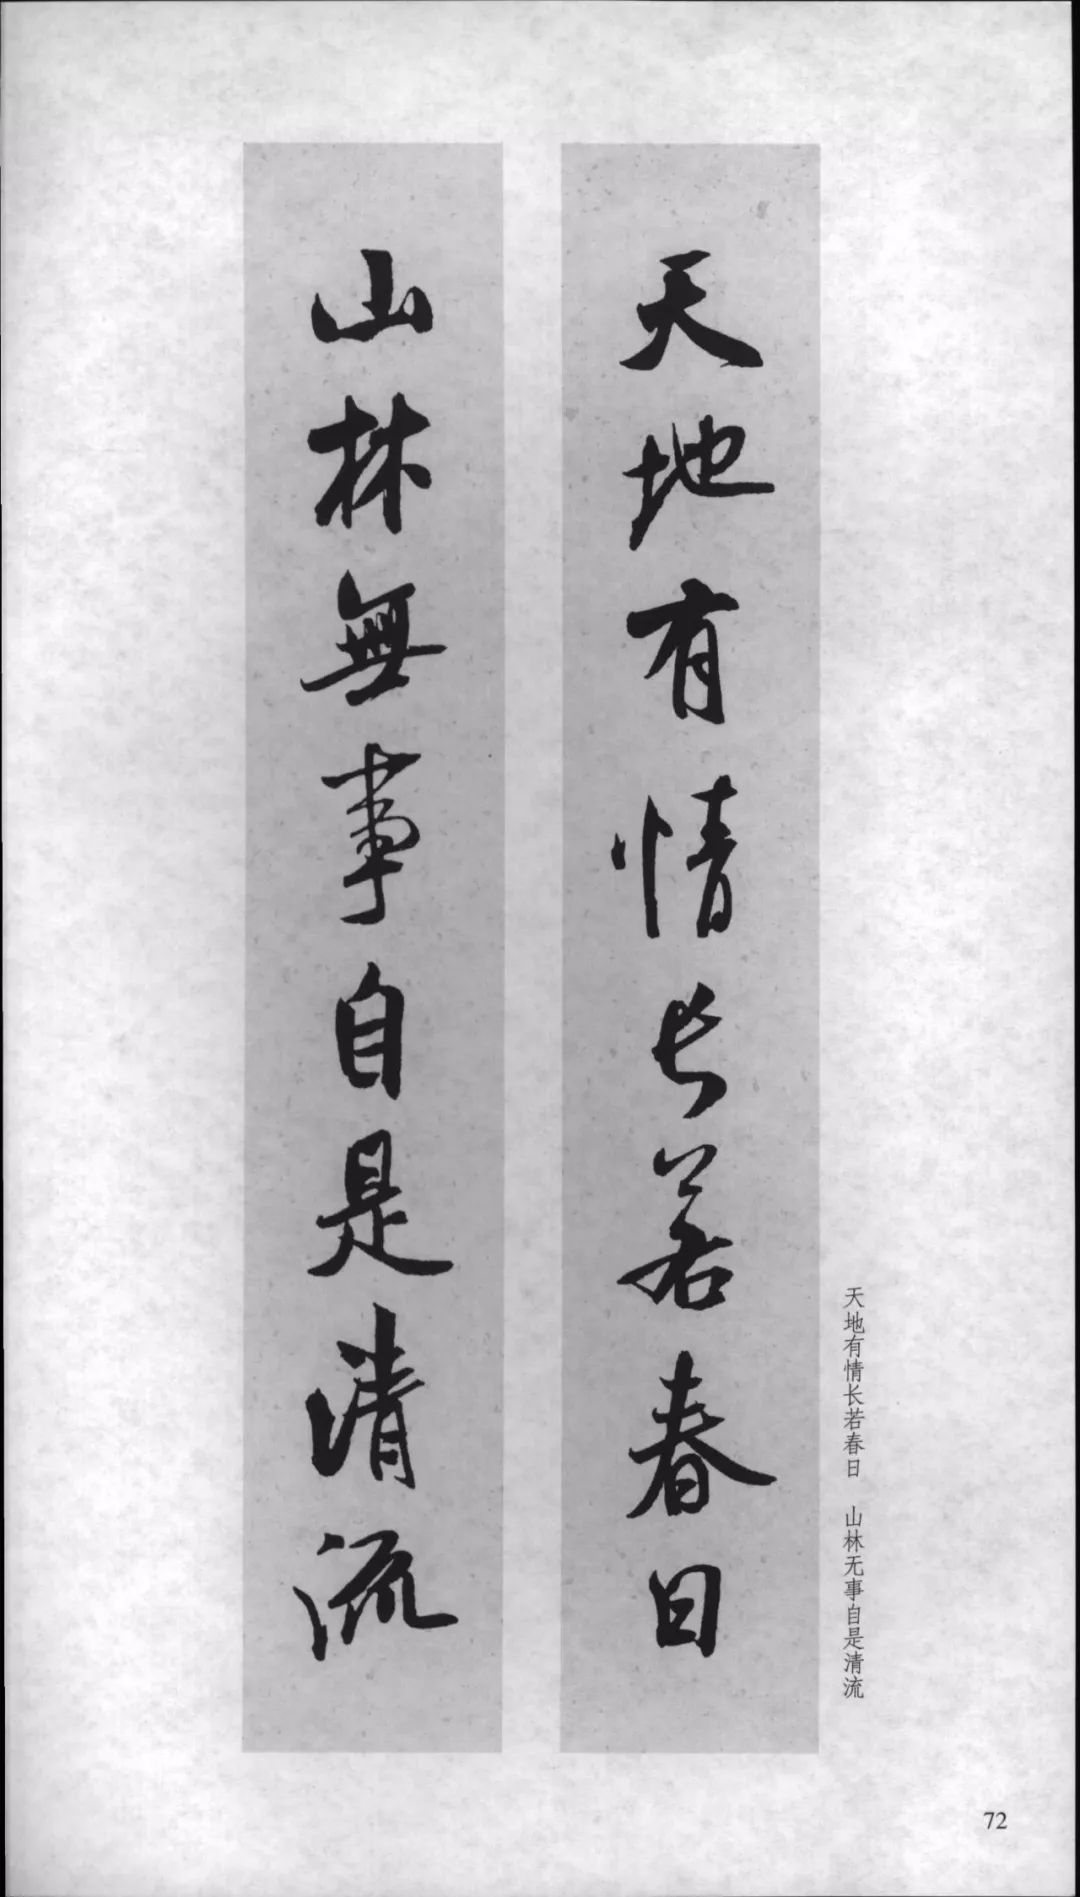 天地有情长若春日　山林无事自是清流
天地有情長若春日
山林無事自是清流
72